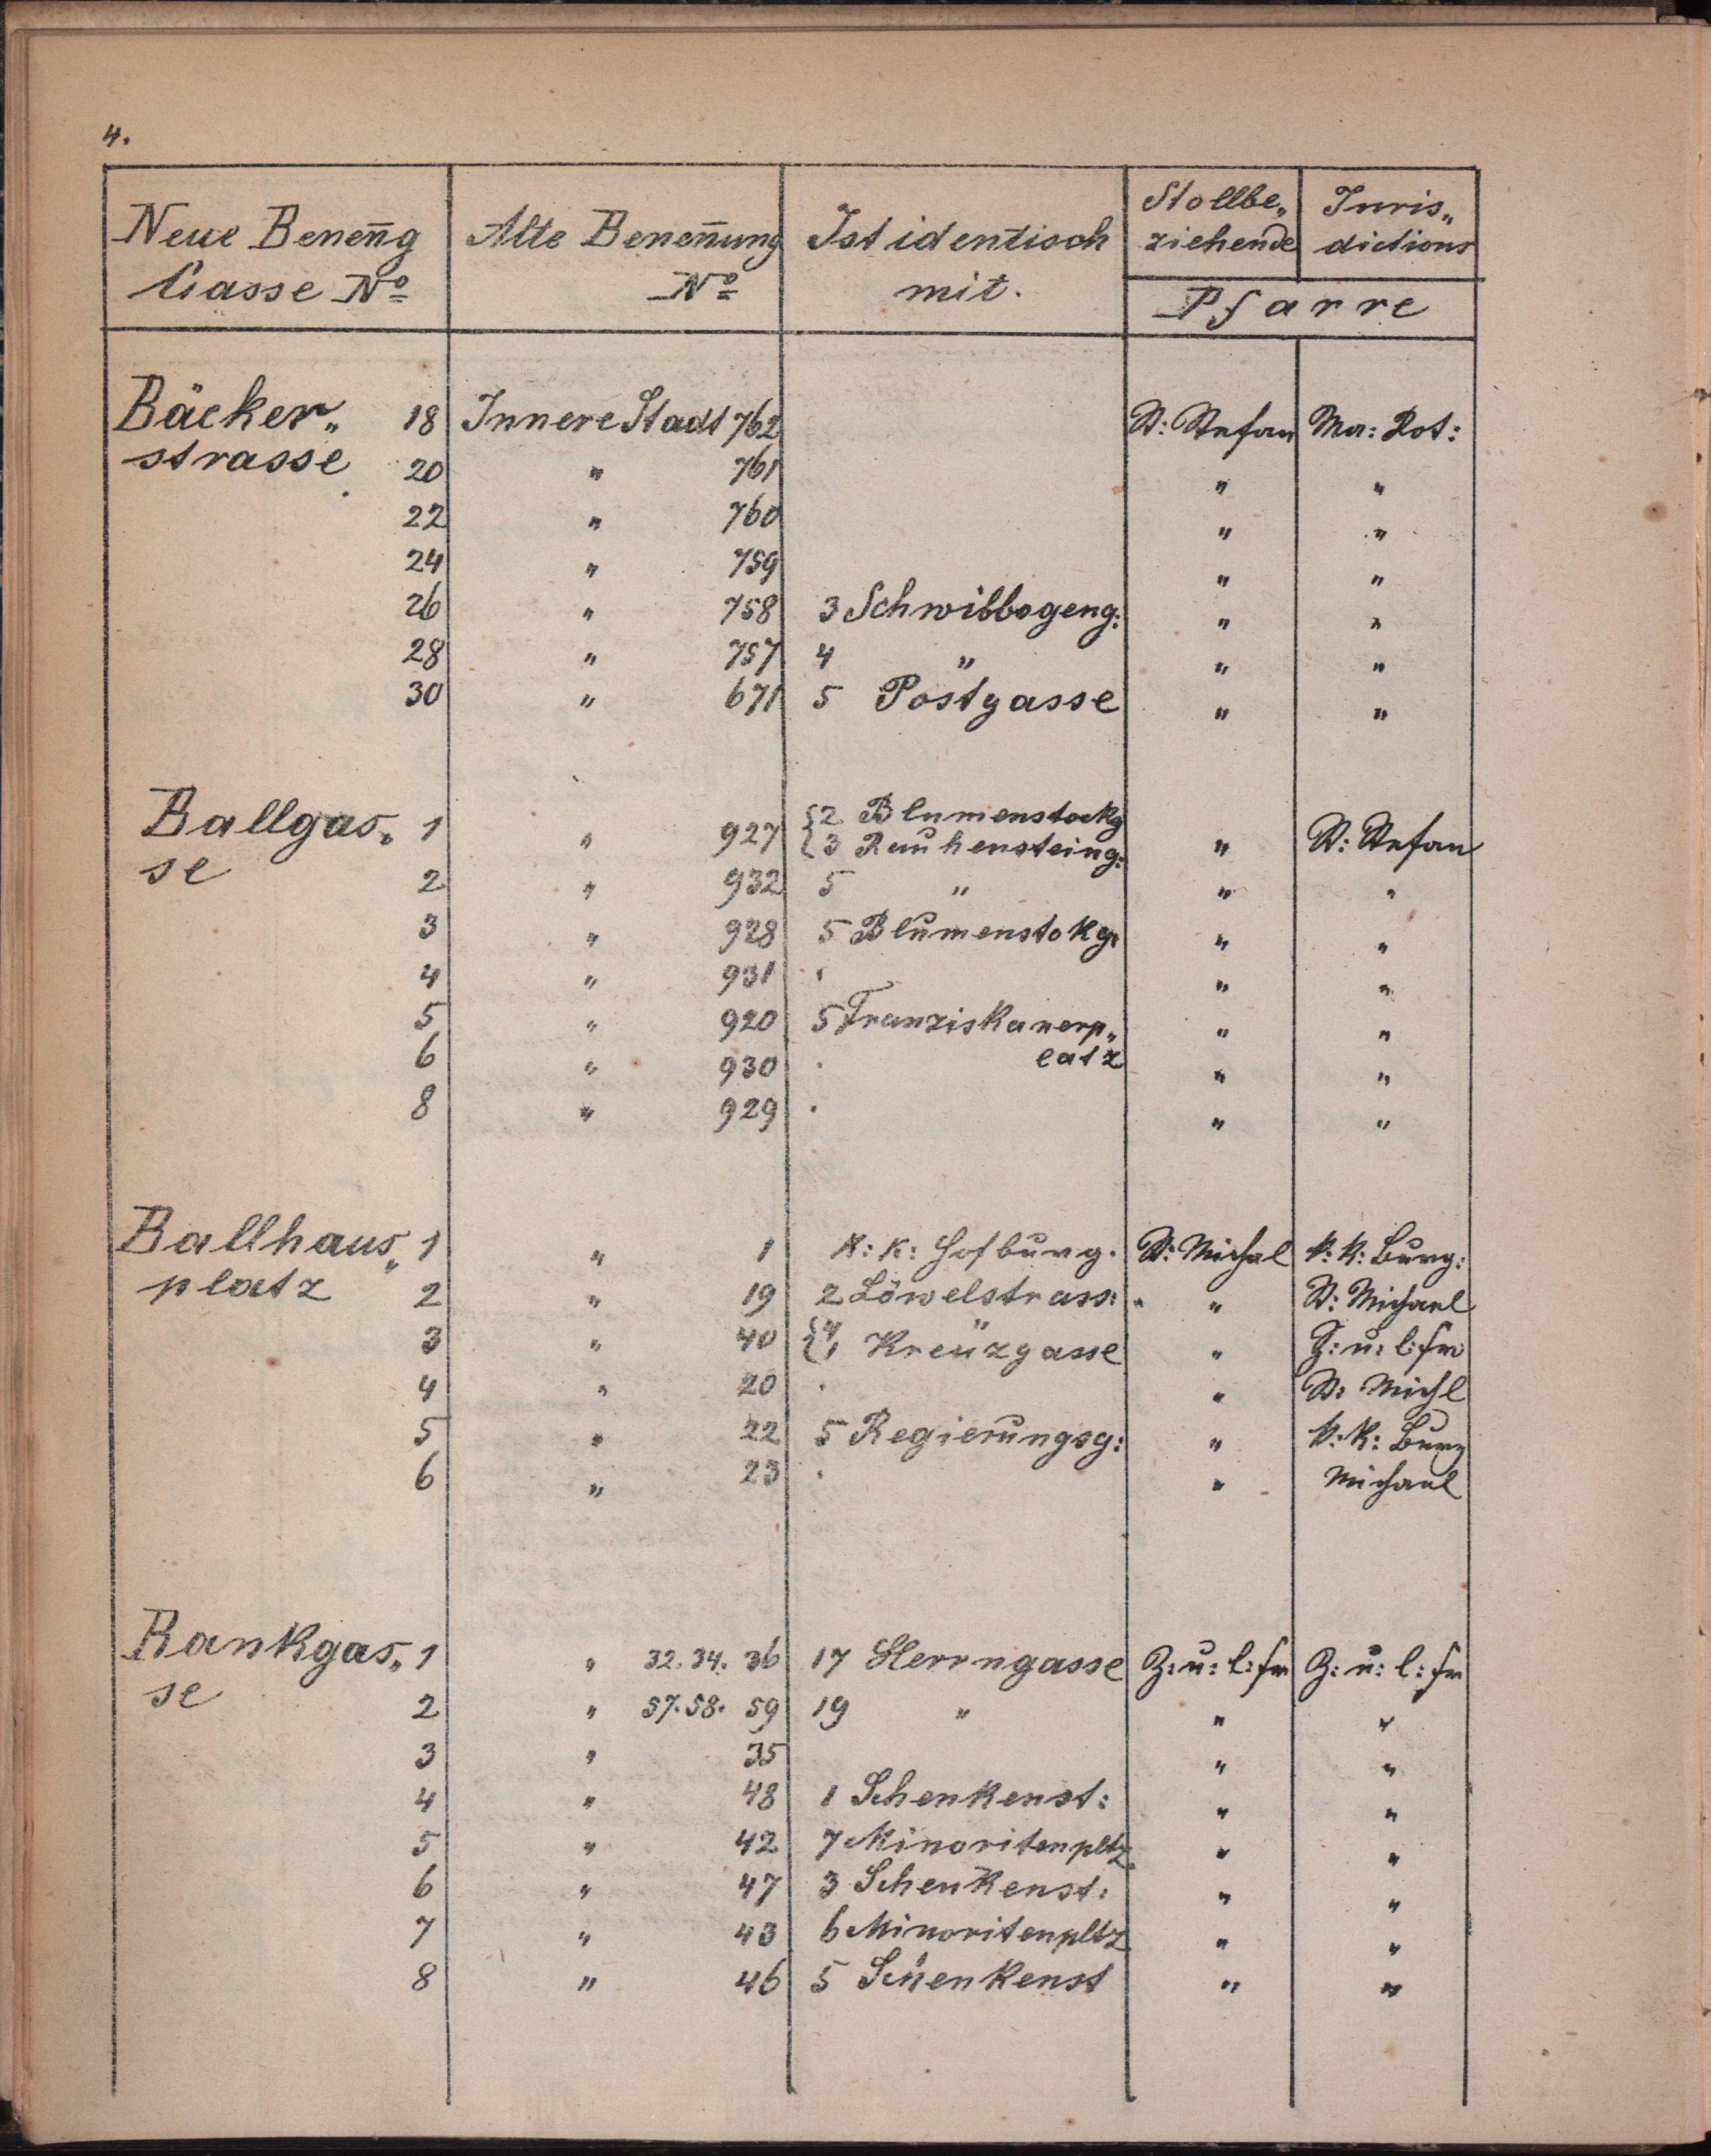 4.
Neue Beneñg Gasse Nº | Alte Beneñung Nº | Ist identisch mit. | Stollbe„ ziehende | Juris„ dictions
Pfarre
Bäcker„ 18 | Innere Stadt 762 | | St: Stefan | Ma: Rot:
strasse 20 | " 761 | | " | "
22 | " 760 | | " | "
24 | " 759 | | " | "
26 | " 758 | 3 Schwibbogeng: | " | "
28 | " 757 | 4 " | " | "
30 | " 671 | 5 Postgasse | " | "
Ballgas„ 1 | " 927 | { 2 Blumenstockg
3 Rauhensteing: | " | St: Stefan
se 2 | " 932 | 5 " | " | "
3 | " 928 | 5 Blumenstokg. | " | "
4 | " 931 | . | " | "
5 | " 920 | 5 Franziskanerp„ | " | "
latz
6 | " 930 | . | " | "
8 | " 929 | . | " | "
Ballhaus„ 1 | " 1 | K: K: Hofburg. | St: Michal | k: k: Burg:
platz 2 | " 19 | 2 Löwelstrass: | " | St: Michael
3 | " 40 | { 4 "
1 Kreuzgasse | " | Z: u: l: fr
4 | " 20 | . | " | St: Michl
5 | " 22 | 5 Regierungsg: | " | k: k: Burg
6 | " 23 | . | " | Michael
Bankgas„ 1 | " 32. 34. 36 | 17 Herrngasse | Z: u: l: fr | Z: u: l: fr
se 2 | " 57. 58. 59 | 19 " | " | "
3 | " 35 | | " | "
4 | " 48 | 1 Schenkenst: | " | "
5 | " 42 | 7 Minoritenpltz. | " | "
6 | " 47 | 3 Schenkenst: | " | "
7 | " 43 | 6 Minoritenpltz | " | "
8 | " 46 | 5 Schenkenst | " | "